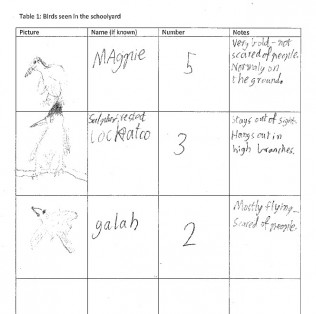 Table 1: Birds seen in the schoolyard
Picture
Name (if known)
Number
Notes
MAgpie
5
Very bold - not
scared of people.
Normaly on
the ground.
crested
COCKatoo
3
Stays out of sight.
Hangs out in
high branches.
galah
2
Mostly flying
Scared of people.